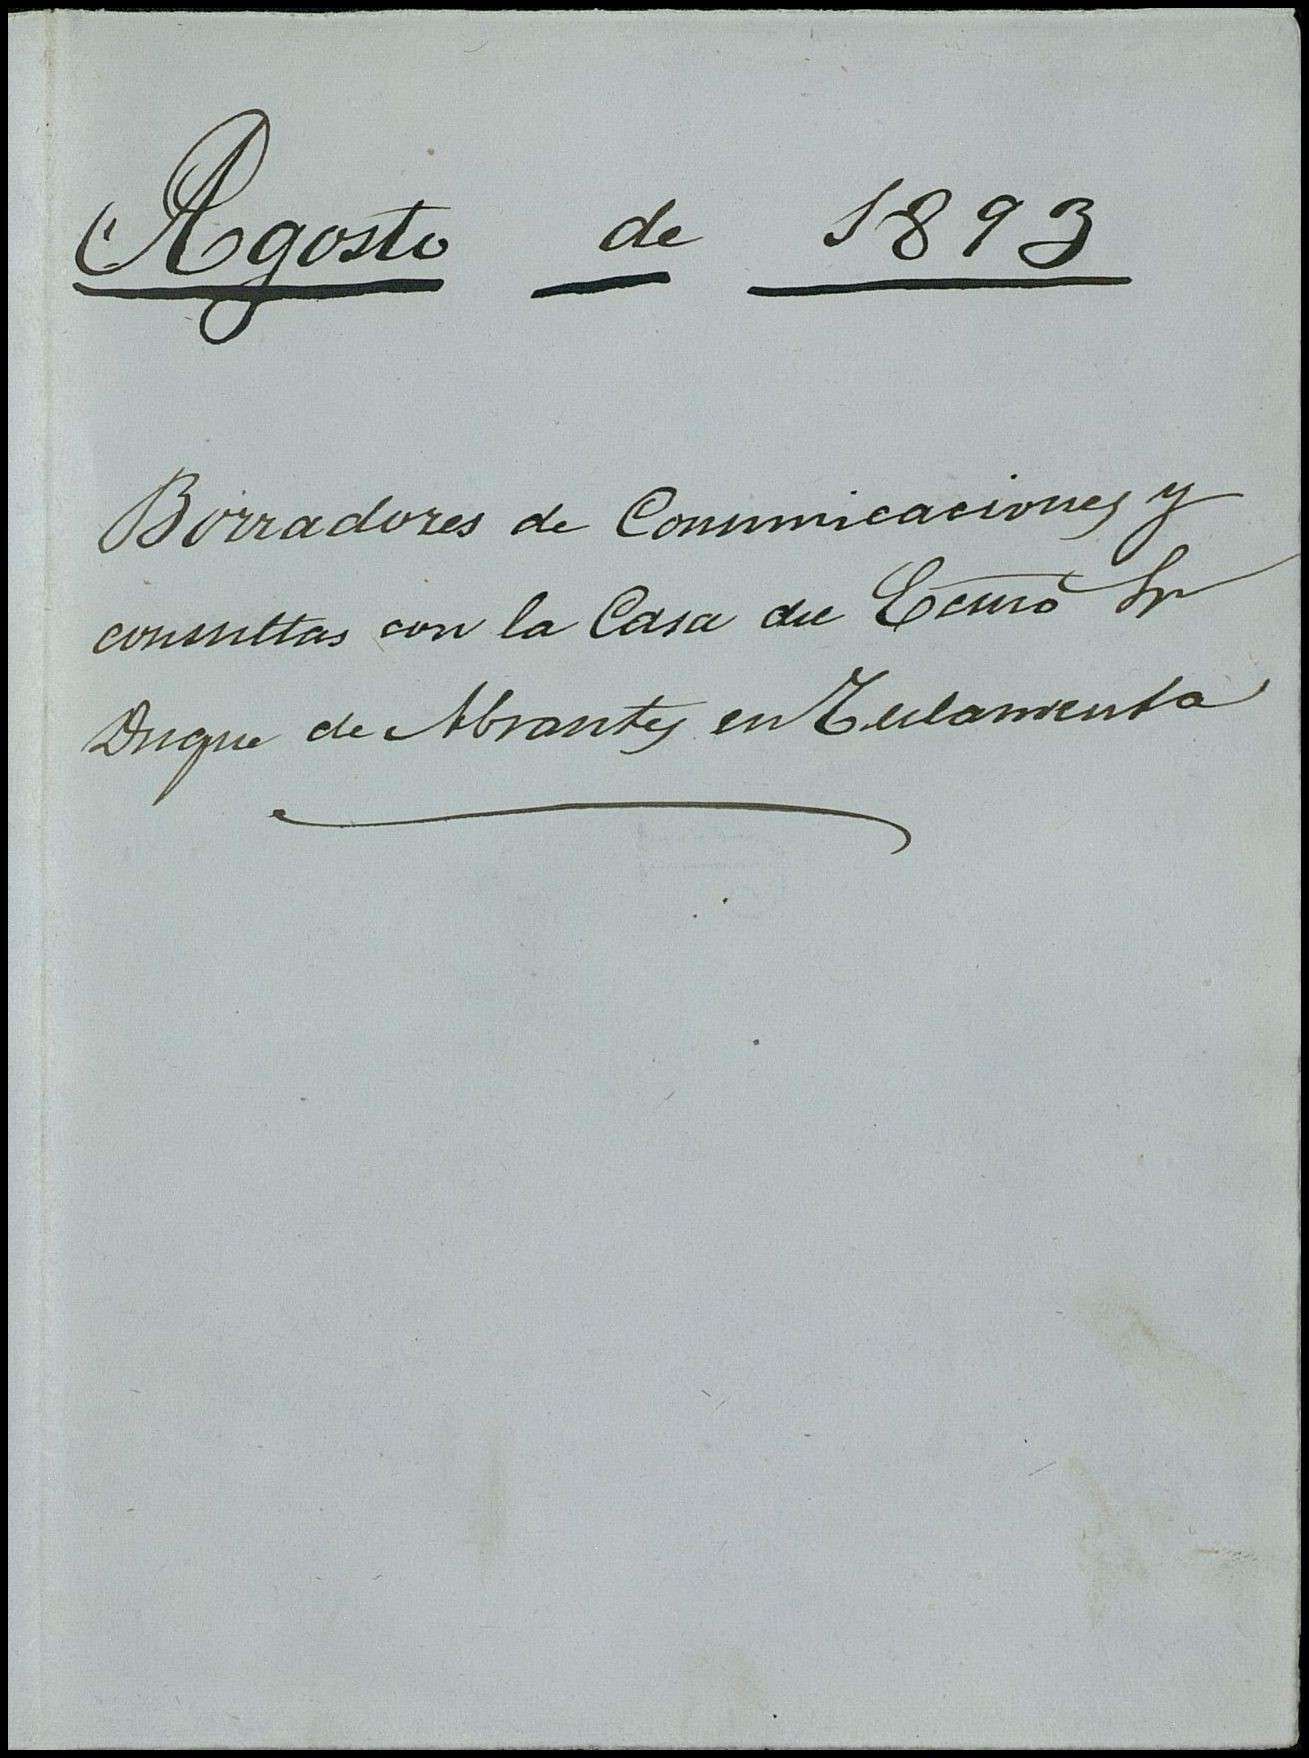 Agosto de 1893
Borradores de Comunicaciones y
consultas con la Casa del Ecmo Sr
Duque de Abrantes en